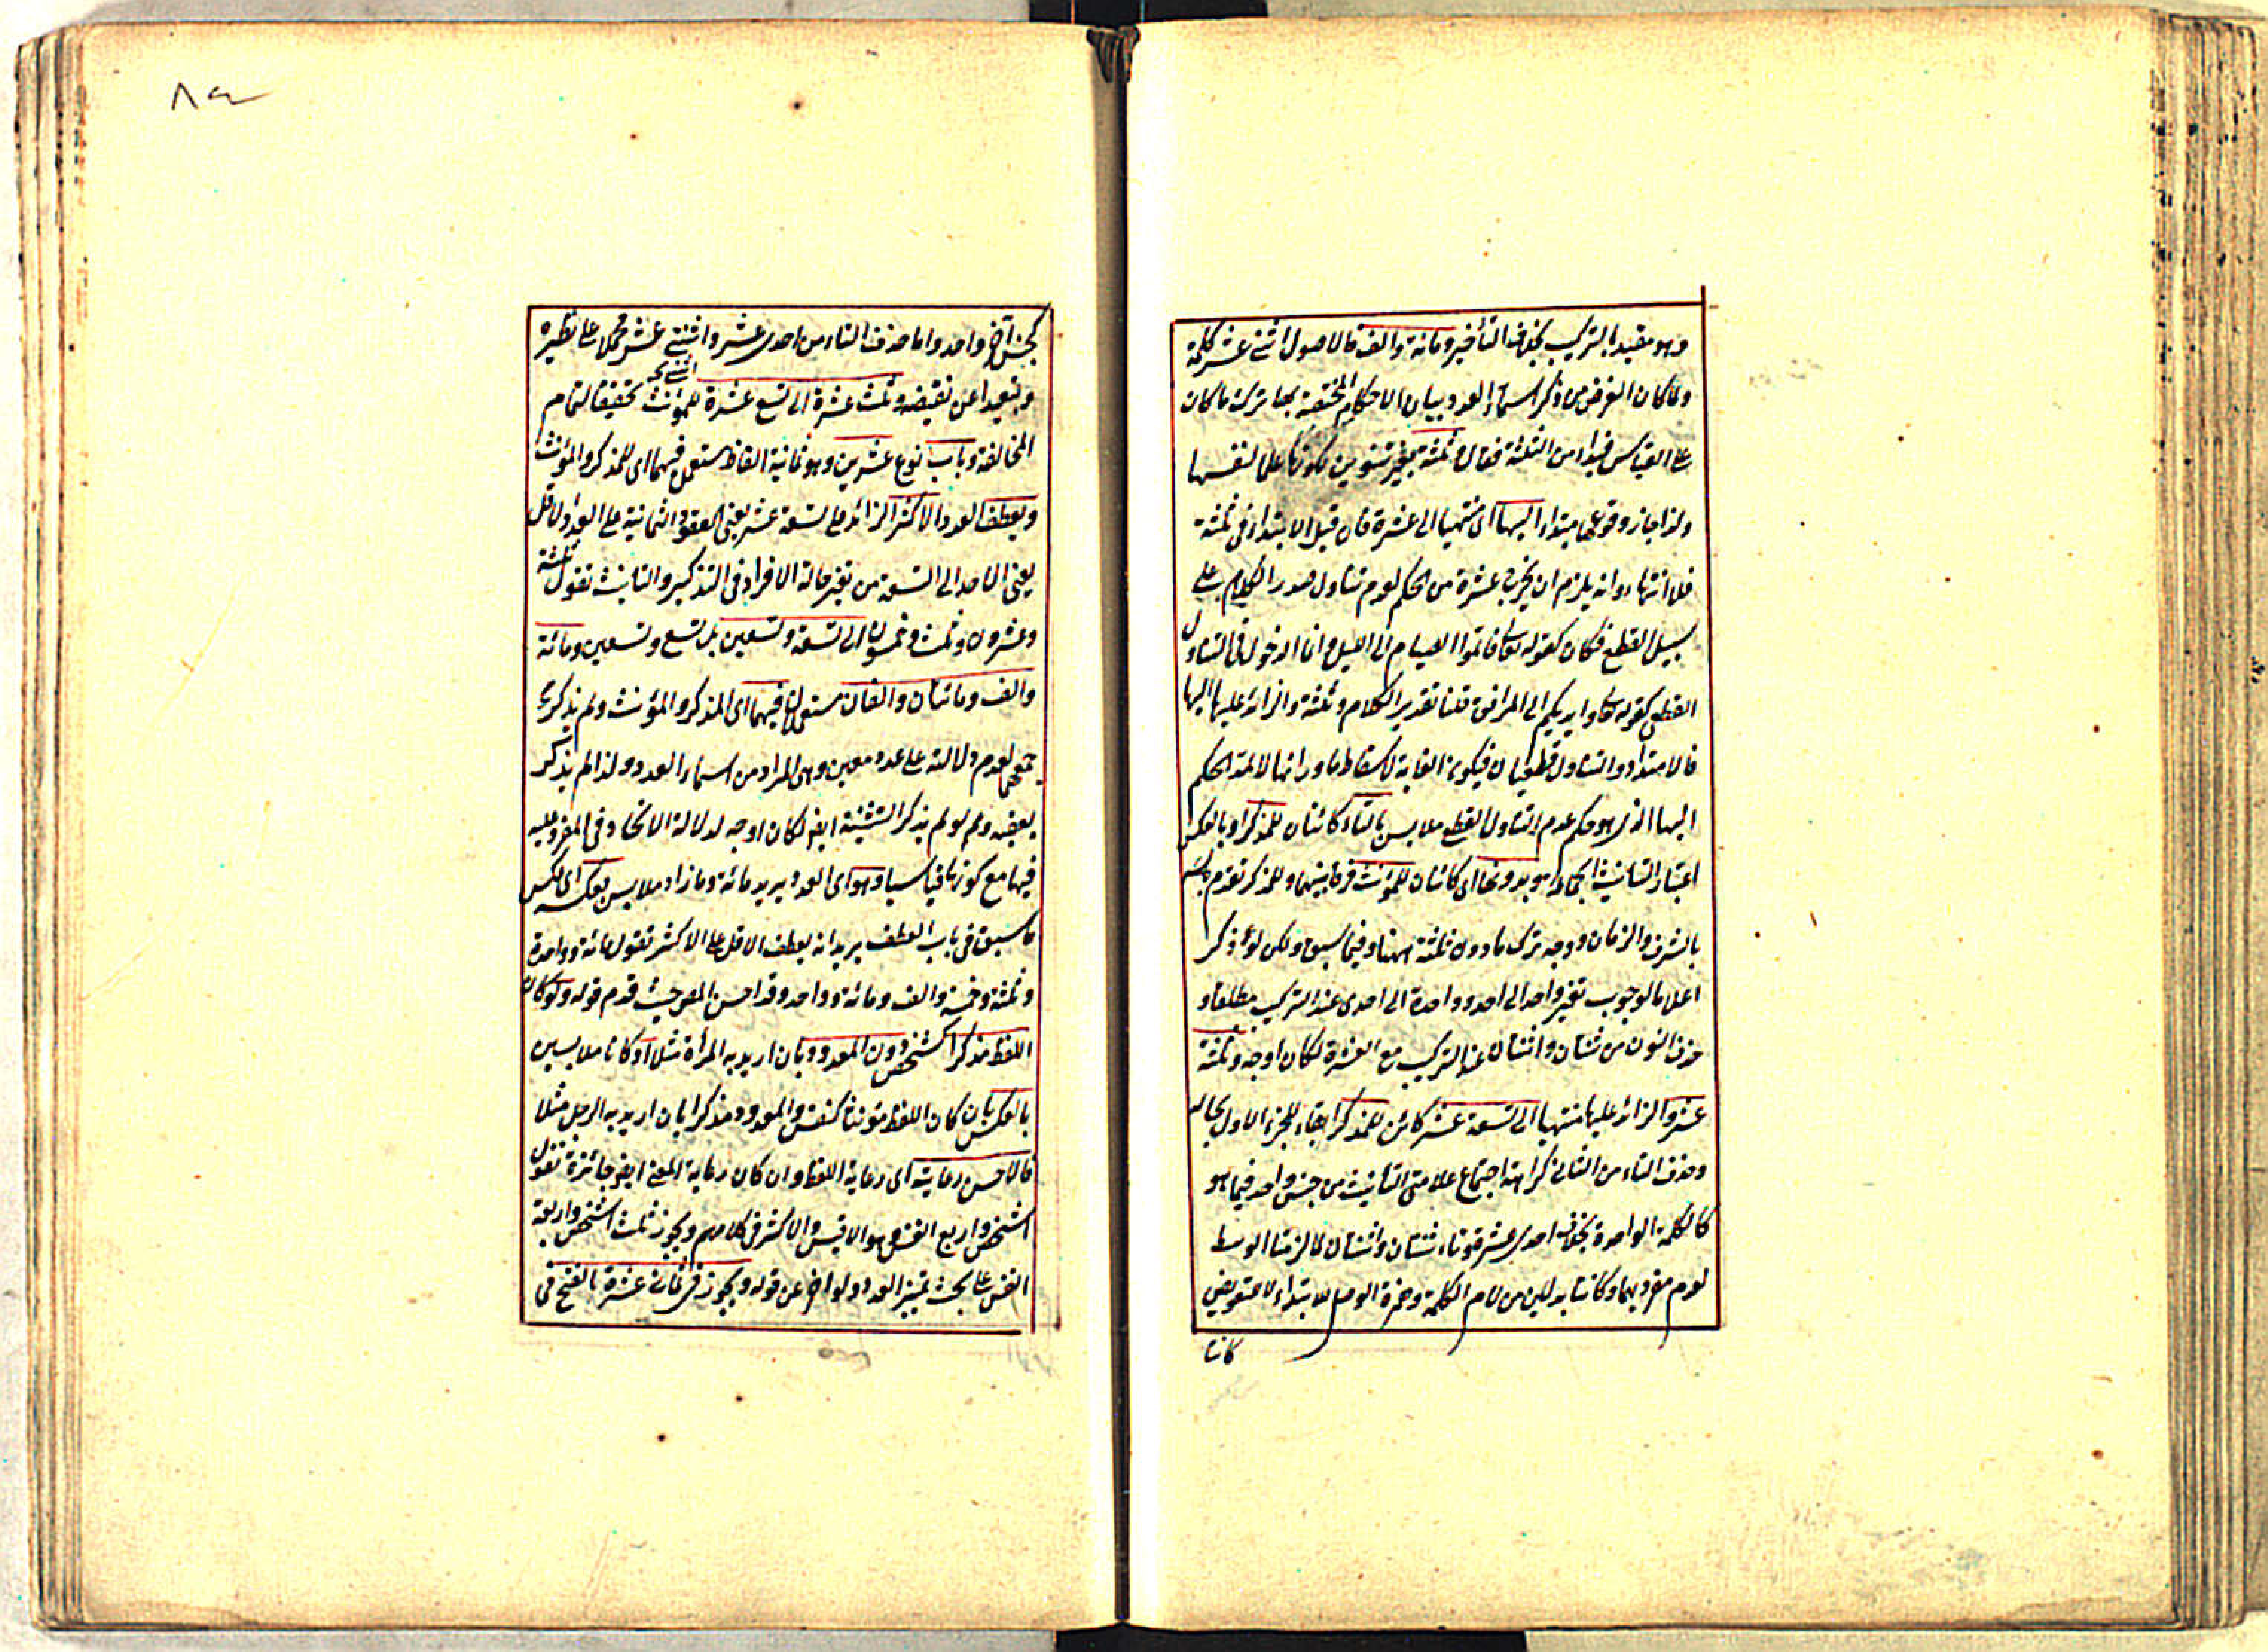 وهو مقيد بالتركيب بخلاف التأخير ومائة والف فالاصول اثنتى عشر كلمة
ولما كان الغرض من ذكر اسماء العدد بيان الاحكام المختصة بها ترك ما كان
على القياس فبدأ من الثلثة فقال وثلثة بغير تنوين لكونها علما لنفسها
ولذا جاز وقوعها مبتداء اليها اى منتهيا الى عشرة فان قيل الابتداء فى ثلثة
فلا انتهاء وانه يلزم ان يخرج عشرة من الحكم لعدم تناول صدر الكلام على
سبيل القطع فكان كقوله تعالى فاتموا الصيام الى الليل وانما الدخول فى التناول
القطعى كقوله تعالى وايديكم الى المرافق قلنا تقدير الكلام وثلثة والزائد عليها اليها
فالامتداد والتناول قطعيان فيكون الغاية لاسقاط ما وراءها لا لمد الحكم
اليها الذى هو حكم عدم التناول القطعى ملابس بالتاء كائنان للمذكر او بالعكس
اعتبار التأنيث الجماعة وهو بدونها اى كائنان للمؤنث فرقا بينهما وللمذكر تقدم
بالشرف والزمان ووجه ترك ما دون ثلثة ههنا وفيما سبق ولكن لو ذكر
اعلاما لوجوب تغير واحد الى احد وواحدة الى احدى عند التركيب مطلقا و
حذف النون من ثنتان واثنتان عند التركيب مع العشرة لكان اوجه وثلثة
عشر والزائد عليها منتهيا الى تسعة عشر كائن للمذكر ابقاء للجزء الاول بحاله
وحذف التاء من الثانى كراهة اجتماع علامتى التأنيث من جنس واحد فيما هو
كالكلمة الواحدة بخلاف احدى عشرة وتاء ثنتان واثنتان لما لزمتا الوسط
لعدم مفرديهما وكانتا بدلين من لام الكلمة وهمزة الوصل للابتداء لا للتعويض
كانتا
٨٩
كجنس آخر واحد واما حذف التاء من احدى عشر واثنتى عشر فحملا على نظيره
وتبعيدا عن نقيضه وثلث عشرة الى تسع عشرة للمؤنث تحقيقا لتمام
المخالفة وباب نوع عشرين وهو ثمانية الفاظ مستعمل فيهما اى للمذكر والمؤنث
ويعطف العدد الاكثر الزائد على تسعة عشر يعنى العقود الثمانية على العدد الاقل
يعنى الاحد الى التسعة من تغير حالة الافراد فى التذكير والتأنيث تقول ثلثة
وعشرون وثلث وخمسون الى تسعة وتسعين بل تسع وتسعين ومائة
والف ومائتان والفان مستعملان فيهما اى المذكر والمؤنث ولم يذكر
جمعهما لعدم دلالته على عدد معين وهى المراد من اسماء العدد ولذا لم يذكر
بعضه ولم لو لم يذكر التثنية ايضا لكان اوجه لدلالة الاتحاد فى المفرد عليه
فيهما مع كونها قياسيا وهو اى العدد يريد مائة وما زاد ملابس بعكسه اى بعكس
ما سبق فى باب العطف يريد انه يعطف الاقل على الاكثر تقول مائة وواحدة
وثلثة وخمسة والف ومائة وواحد وقد احسن المص حيث قدم قوله ولو كان
اللفظ مذكرا كشخص دون المعدود بان اريد به المرأة مثلا او كانا ملابسين
بالعكس بان كان اللفظ مؤنثا كنفس والمعدود مذكرا بان اريد به الرجل مثلا
فالاحسن رعايته اى رعاية اللفظ وان كان رعاية المعنى ايضا جائزة تقول
اشخص واربع انفس وهو الاقيس والاكثر فى كلامهم ويجوز ثلث اشخص واربعة
انفس على بحث تمييز العدد ولو اخر عن قوله ويجوز فى ثمانى عشرة بالفتح فى